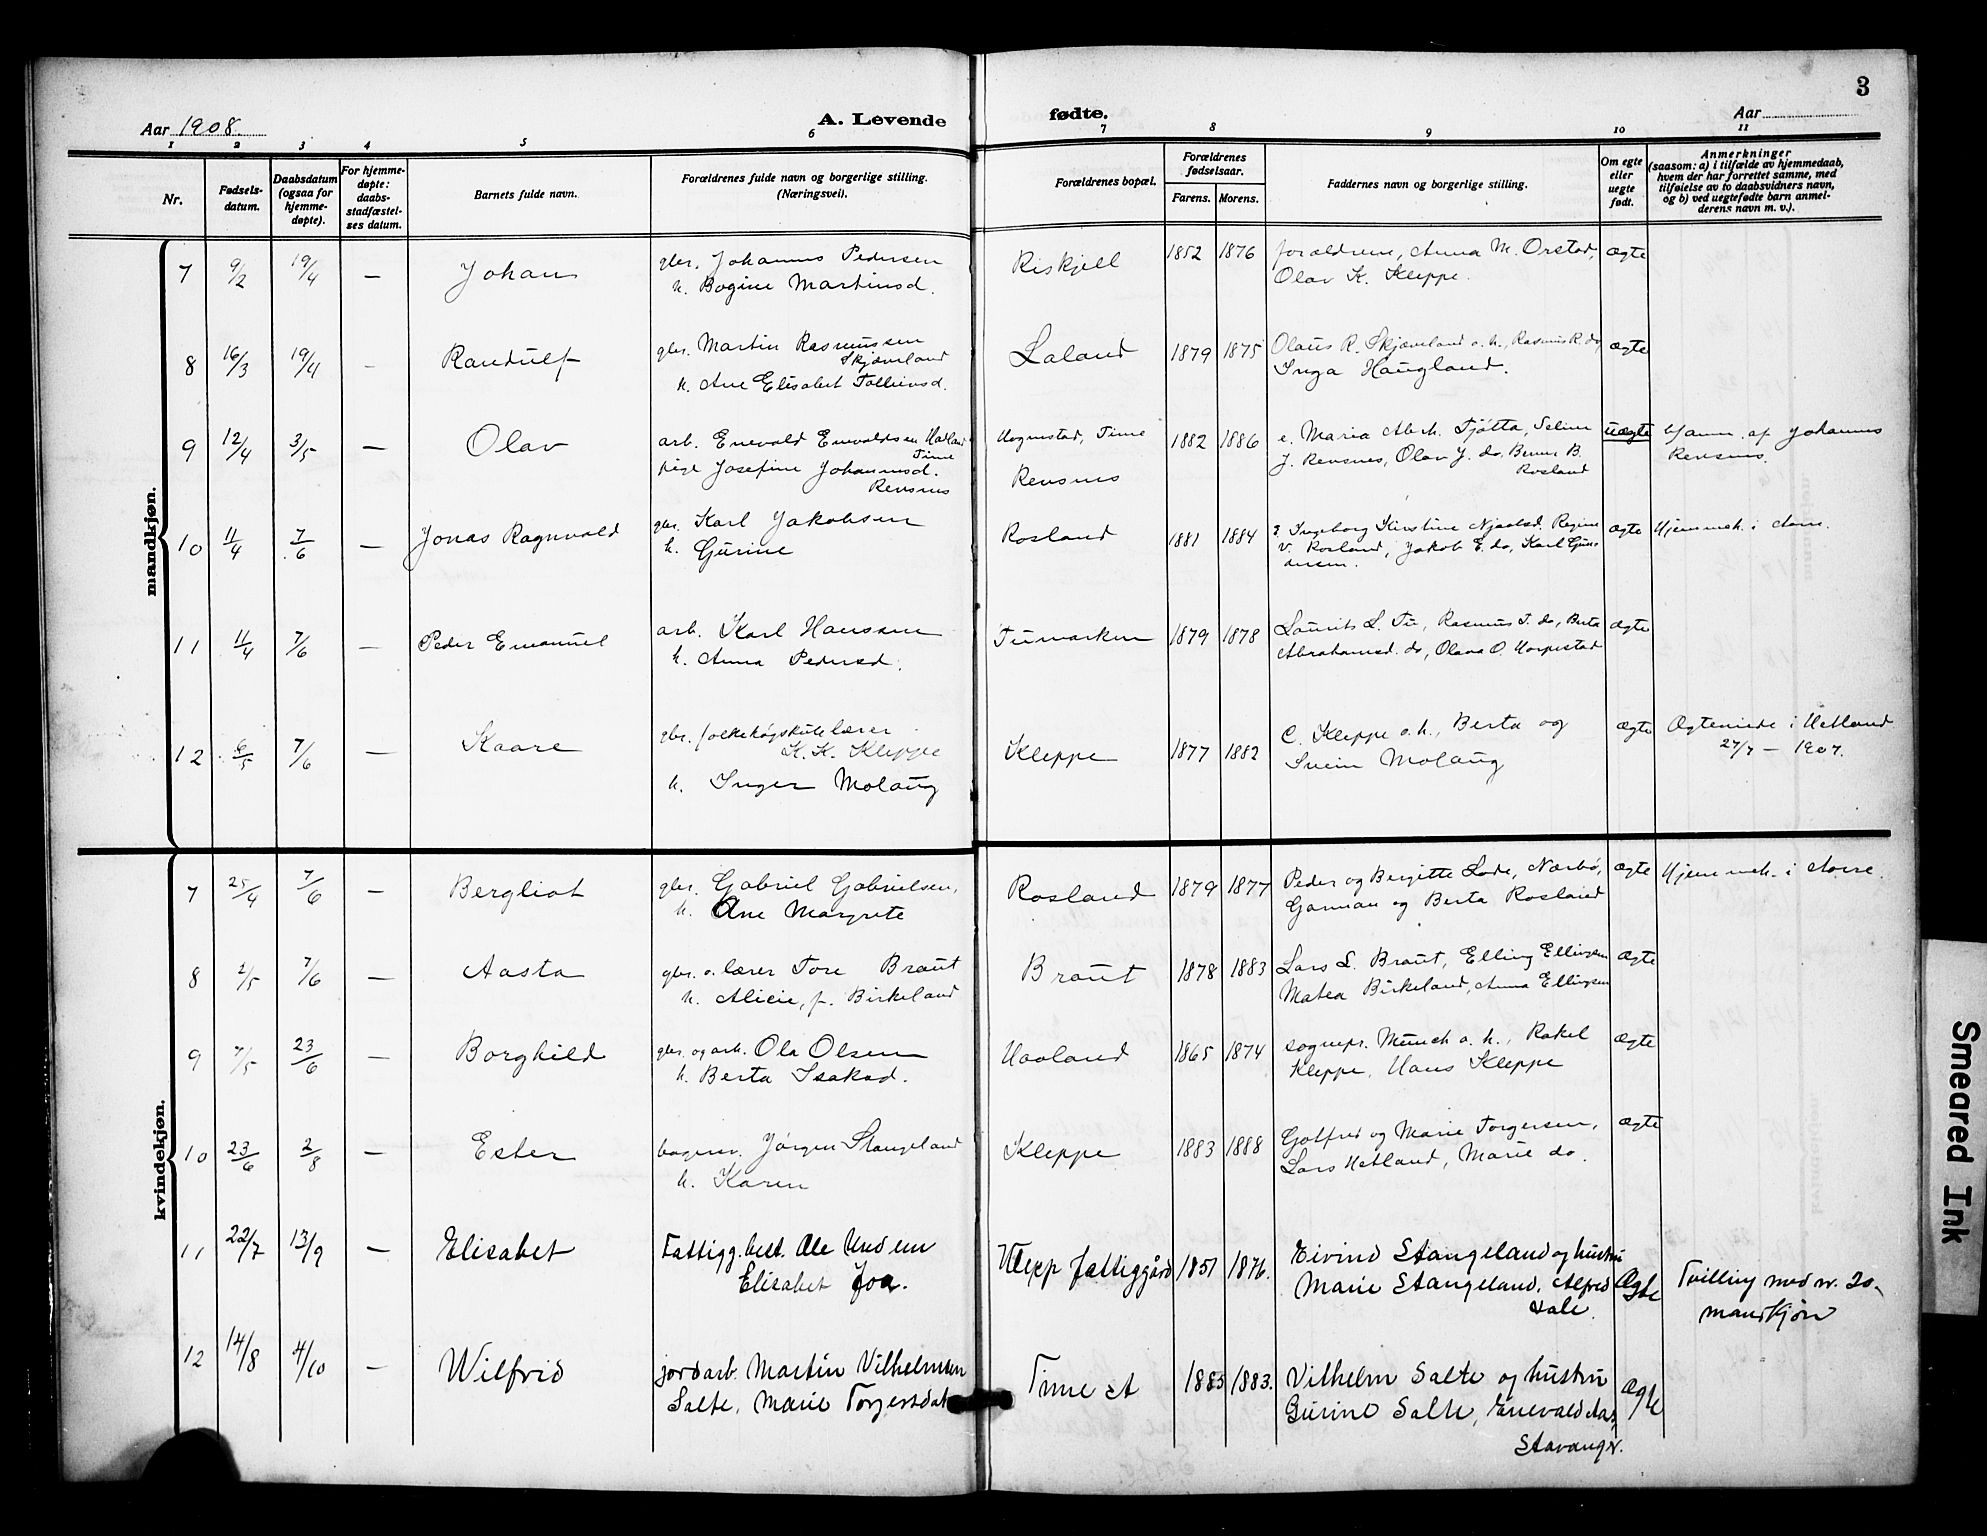 3
Aar 1908.
A. Levende
fødte.
Aar
1 2 3 4 5 6 7 8 9 10 11
Nr.
Fødsels-
datum.
Daabsdatum
(ogsaa for
hjemme-
døpte).
For hjemme-
døpte:
daabs-
stadfæstel-
ses datum.
Barnets fulde navn.
Forældrenes fulde navn og borgerlige stilling.
(Næringsvei).
Forældrenes bopæl.
Forældrenes
fødselsaar.
Farens. Morens.
Faddernes navn og borgerlige stilling.
Om egte
eller
uegte
født.
Anmerkninger
(saasom: a) i tilfælde av hjemmedaab,
hvem der har forrettet samme, med
tilføielse av to daabsvidners navn,
og b) ved uegtefødte barn anmel-
derens navn m. v.).
mandkjøn.
7 9/2 19/4 — Johan
gbr. Johannes Pedersen
h. Bogine Martinsd.
Riskjell 1852 1876
forældrene, Anna M. Orstad,
Olav K. Kleppe.
ægte
8 16/3 19/4 - Randulf
gbr. Martin Rasmussen
Skjæveland
h. Ane Elisabet Tolleivsd.
Laland 1879 1875
Olaus R. Skjæveland o. h., Rasmus R. do,
Inga Haugland.
ægte
9 12/4 3/5 — Olav
arb. Enevald Enevaldsen Haland
Time
pige Josefine Johannesd.
Revsnes
Hognestad, Time
Revsnes
1882 1886
e. Maria Ab.h. Tjøtta, Seline
J. Revsnes, Olav J. do,
Rosland
uægte
af Johannes
Revsnes.
10 11/4 7/6 — Jonas Ragnvald
gbr. Karl Jakobsen
h. Gurine
Rosland 1881 1884
Ingeborg Kirstine Njaalsd, Regine
V. Rosland, Jakob E. do, Karl Gun
dersen.
ægte
Hjemmeh. i Aarre.
11 11/4 7/6 — Peder Emanuel
arb. Karl Hansen
h. Anna Pedersd.
Tumarken 1879 1878
Laurits L. Tu, Rasmus T. do, Berta
Abrahamsd. do, Olava O. Horpestad
ægte
12 6/5 7/6 — Kaare
gbr. folkehøgskulelærer
K. K. Kleppe
h. Inger Molaug
Kleppe 1877 1882
C. Kleppe o.h., Berta og
Svein Molaug
ægte
Ægteviede i Hetland
27/7 – 1907.
kvindekjøn.
7 25/4 7/6 — Bergliot
gbr. Gabriel Gabrielsen,
h. Ane Margrete
Rosland 1879 1877
Peder og Bergitte Lode, Nærbø,
Garman og Berta Rosland
ægte
Hjemmeh. i Aarre.
8 2/5 7/6 — Aasta
gbr. o. lærer Tore Braut
h. Alicie, f. Birkeland
Braut 1878 1883
Lars L. Braut, Elling Ellingsen
Matea Birkeland, Anna Ellingsen
ægte
9 7/5 23/6 — Borghild
gbr. og arb. Ola Olsen
h. Berta Isaksd.
Haaland 1865 1874
sognepr. Munch o. h., Rakel
Kleppe, Hans Kleppe
ægte
10 23/6 2/8 — Ester
Jørgen Stangeland
h. Karen
Kleppe 1883 1888
Gotfred og Marie Torgersen,
Lars Hetland, Marie do.
ægte
11 22/7 13/9 — Elisabet
Fattigg.best. Ole Undem
Elisabet Joa.
Klepp fattiggård 1851 1876.
Eivind Stangeland og hustru
Marie Stangeland, Alfred
Sale.
Ægte
Tvilling med nr. 20
mandkjøn
12 14/8 4/10 — Wilfrid
jordarb. Martin Vilhelmsen
Salte, Marie Torgersdat
Time st 1883 1883.
Vilhelm Salte og hustru
Gurine Salte, Enevald Aas
Stavanger.
Ægte
Smeared Ink